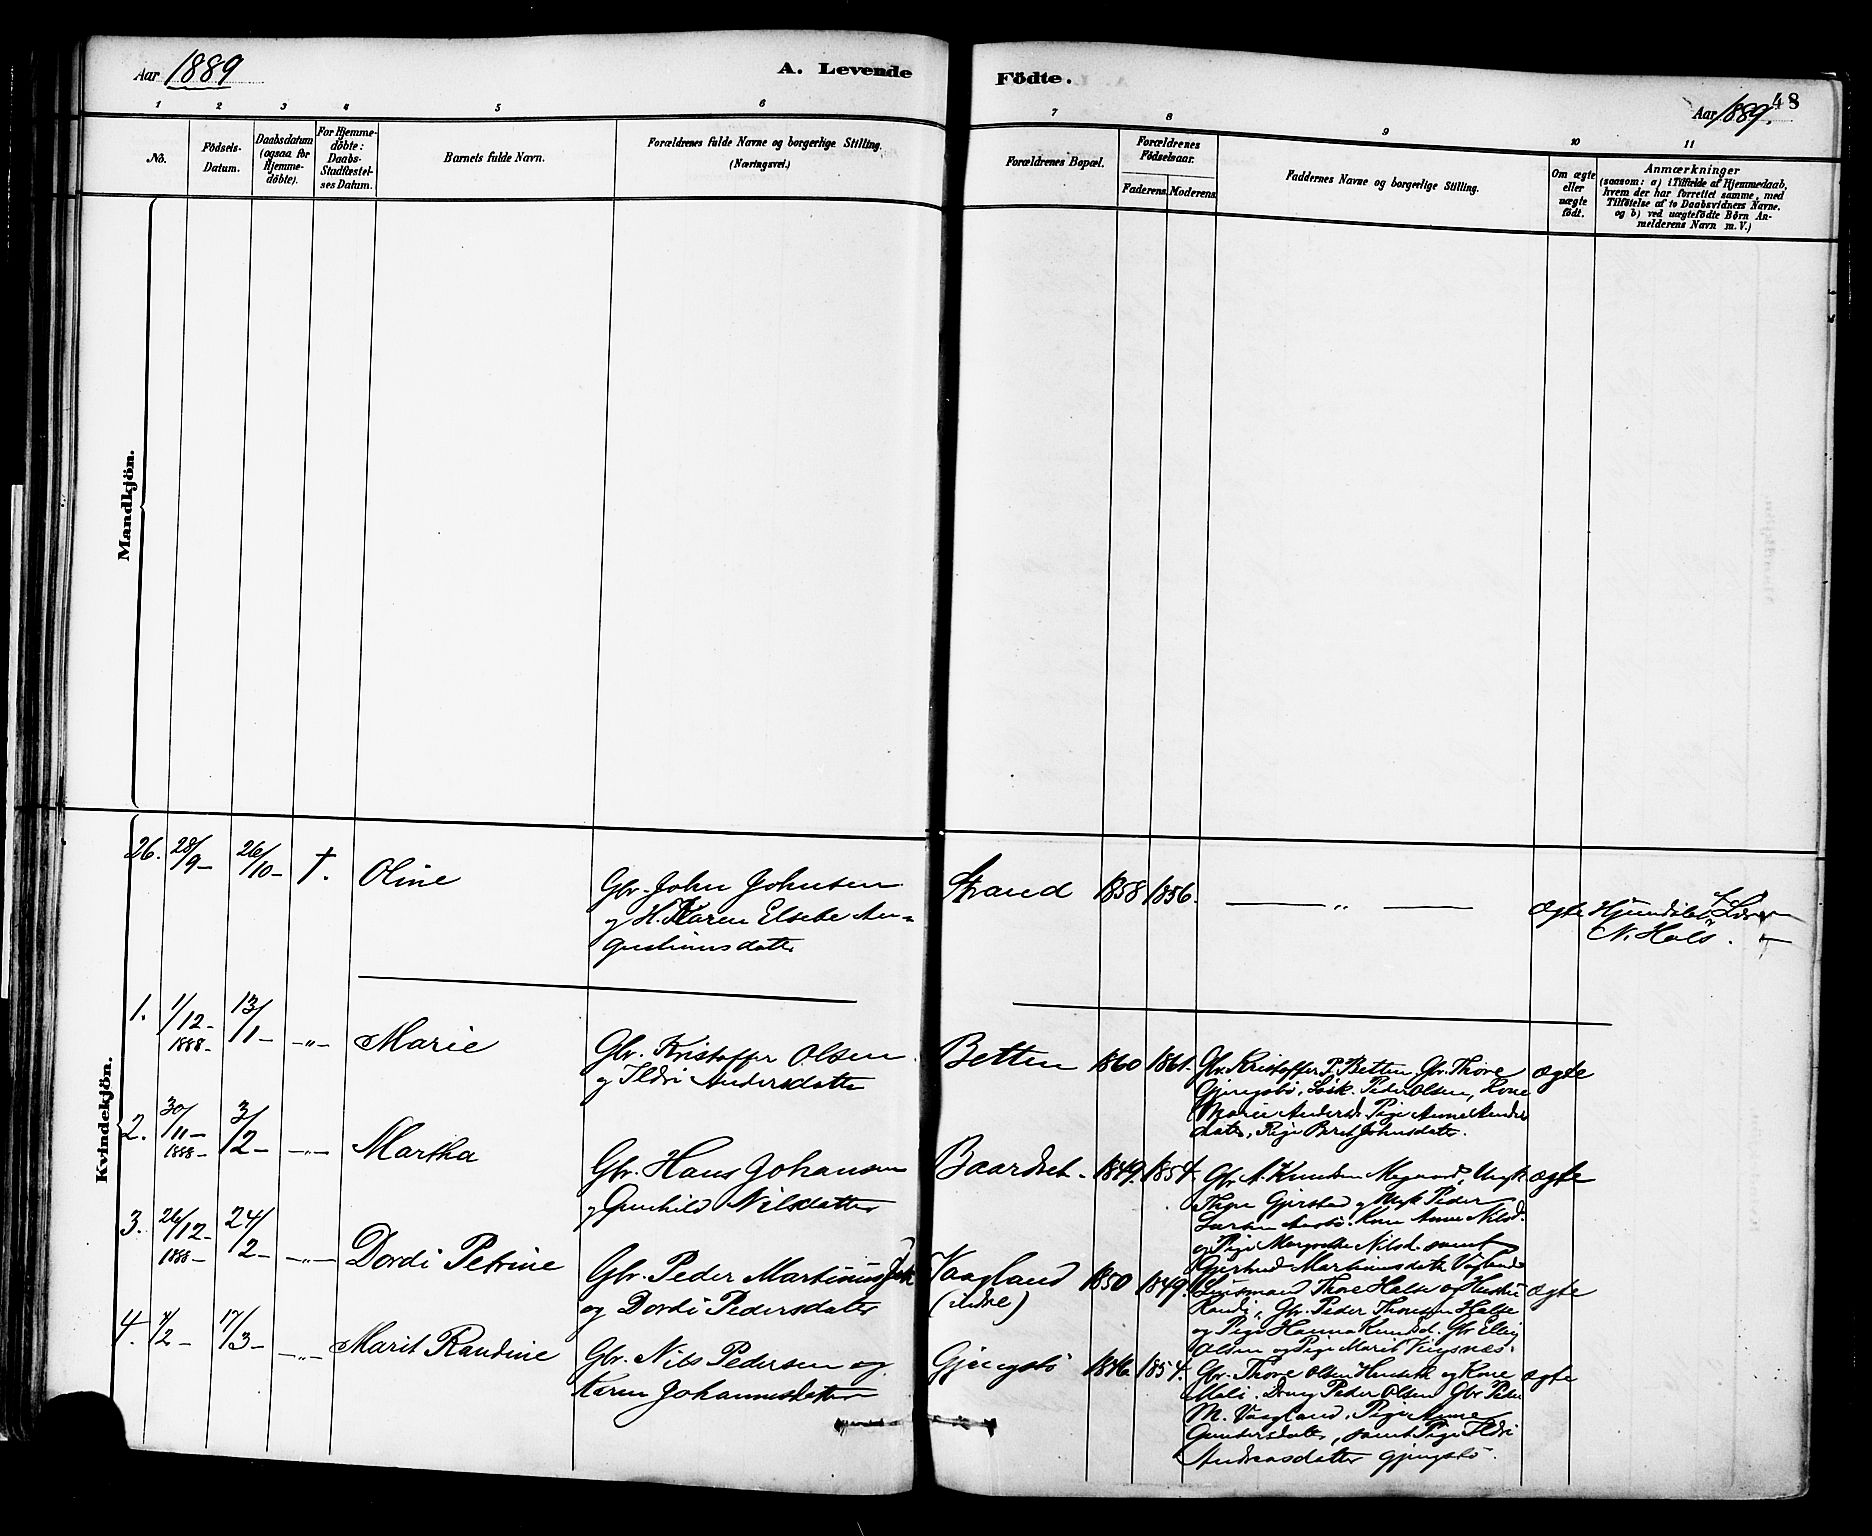 Aar 1889
A. Levende
Födte.
Aar 1889.
48
1 2 3 4 5 6
7 8 9 10 11
No.
Födsels-
Datum.
Daabsdatum
(ogsaa for
Hjemme-
döbte).
For Hjemme-
döbte:
Daabs-
Stadfæstel-
ses Datum.
Barnets fulde Navn.
Forældrenes fulde Navne og borgerlige Stilling.
(Næringsvei.)
Forældrenes Bopæl.
Forældrenes
Födselsaar.
Faderens.
Moderens.
Faddernes Navne og borgerlige Stilling.
Om ægte
eller
uægte
födt.
Anmærkninger
(saasom: a) i Tilfælde af Hjemmedaab,
hvem der har forrettet samme, med
Tilföielse af to Daabsvidners Navne.
og b) ved uægtefödte Börn An-
melderens Navn m. V.)
Mandkjön.
Kvindekjön.
26. 28/9- 26/10- †. Oline
Gbr. John Johnsen
og H. Karen Elsebe Au-
gustinusdatter
Strand 1858 1856. — „ — ægte
N. Hals.
1. 1/12- 1888- 13/1- -„- Marie
Gbr. Kristoffer Olsen
og Ildri Andersdatter
Betten 1860 1861.
Gbr. Kristoffer P. Betten, Gbr. Thore
Gjengstö, Peder Olsen, Kone
Marie Andersd. Pige Anne Anders
datter, Pige Beret Johnsdatter.
ægte
2. 30/11- 1888- 3/2- -„- Martha
Gbr. Hans Johansen
og Gunhild Nilsdatter
Baardset. 1849. 1854.
Gbr. A. Knudsen
Peder
Larsen Kone Anne Nilsd.
og Pige Margrethe Nilsd. samt
Gjertrud Martinusdatter Vaagland
ægte
3. 26/12- 1888- 24/2- -„- Dordi Petrine
Gbr. Peder Martinus
og Dordi Pedersdatter
Vaagland
(indre)
1850 1849.
Lensmand Thore Halse og Hustru
Randi, Gbr. Peder Thoresen Halse
og Pige Hanna Knudsd. Gbr.
Olsen og Pige Marit
ægte
4. 7/2- 17/3- -„- Marit Randine
Gbr. Nils Pedersen og
Karen Johannesdatter
Gjengstö 1846 1854.
Gbr. Thore Olsen og Kone
Mali. Dreng Peder Olsen Gbr Peder
M. Vaagland. Pige Anne
Gundersdatter, samt Pige Ildri
Andreasdatter Gjengstö.
ægte